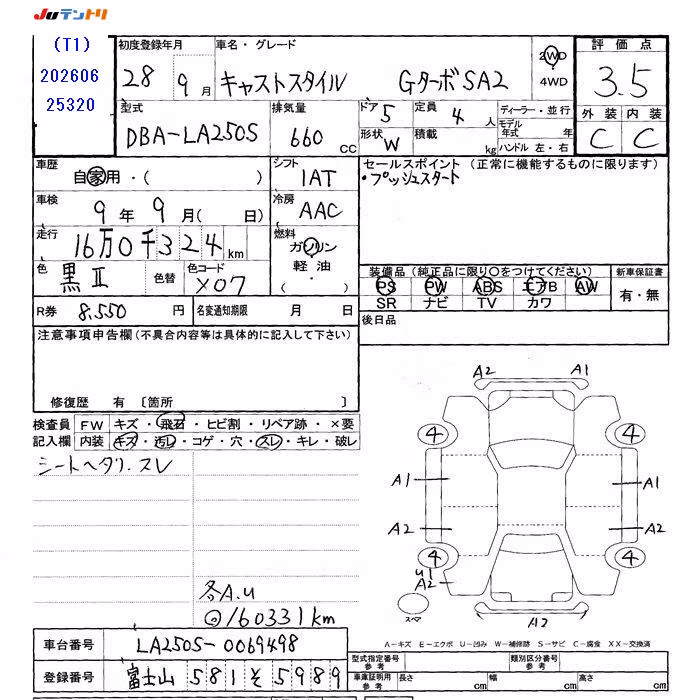 JUテントリ
(T1)
202606
25320
初度登録年月 車名・グレード 評価点
28 9月 キャストスタイル Gターボ SA2 2WD 4WD 3.5
型式 排気量 ドア 5 定員 4人 ディーラー・並行 外装 内装
DBA-LA250S 660cc 形状 W 積載 kg モデル年式 年 C C
ハンドル 左・右
車歴 シフト セールスポイント (正常に機能するものに限ります)
自家用・( ) IAT ・プッシュスタート
車検 冷房
9年9月( 日) AAC
走行 燃料
16万0千324km ガソリン
軽油・
( )
色 色替 色コード 装備品(純正品に限り○をつけてください) 新車保証書
黒II X07 PS PW ABS エアB AW 有・無
SR ナビ TV カワ
R券 8,550円 名変通知期限 月 日 後日品
注意事項申告欄(不具合内容等は具体的に記入して下さい)
修復歴 有 〔箇所 〕
検査員 FW キズ・飛石・ヒビ割・リペア跡・×要
記入欄 内装 キズ・汚レ・コゲ・穴・スレ・キレ・破レ
シートヘタリ.スレ
A2 A1
4 4
A1 A1
A2 A2
4 4
U1
A2
スペア
A2
各A.U
◎160331km
A-キズ E-エクボ U-凹み W-補修跡 S-サビ C-腐食 XX-交換済
車台番号 LA250S-0069498
型式指定番号 参考 類別区分番号 参考
登録番号 富士山 581 そ 5989
車庫証明用 参考 長さ cm 幅 cm 高さ cm